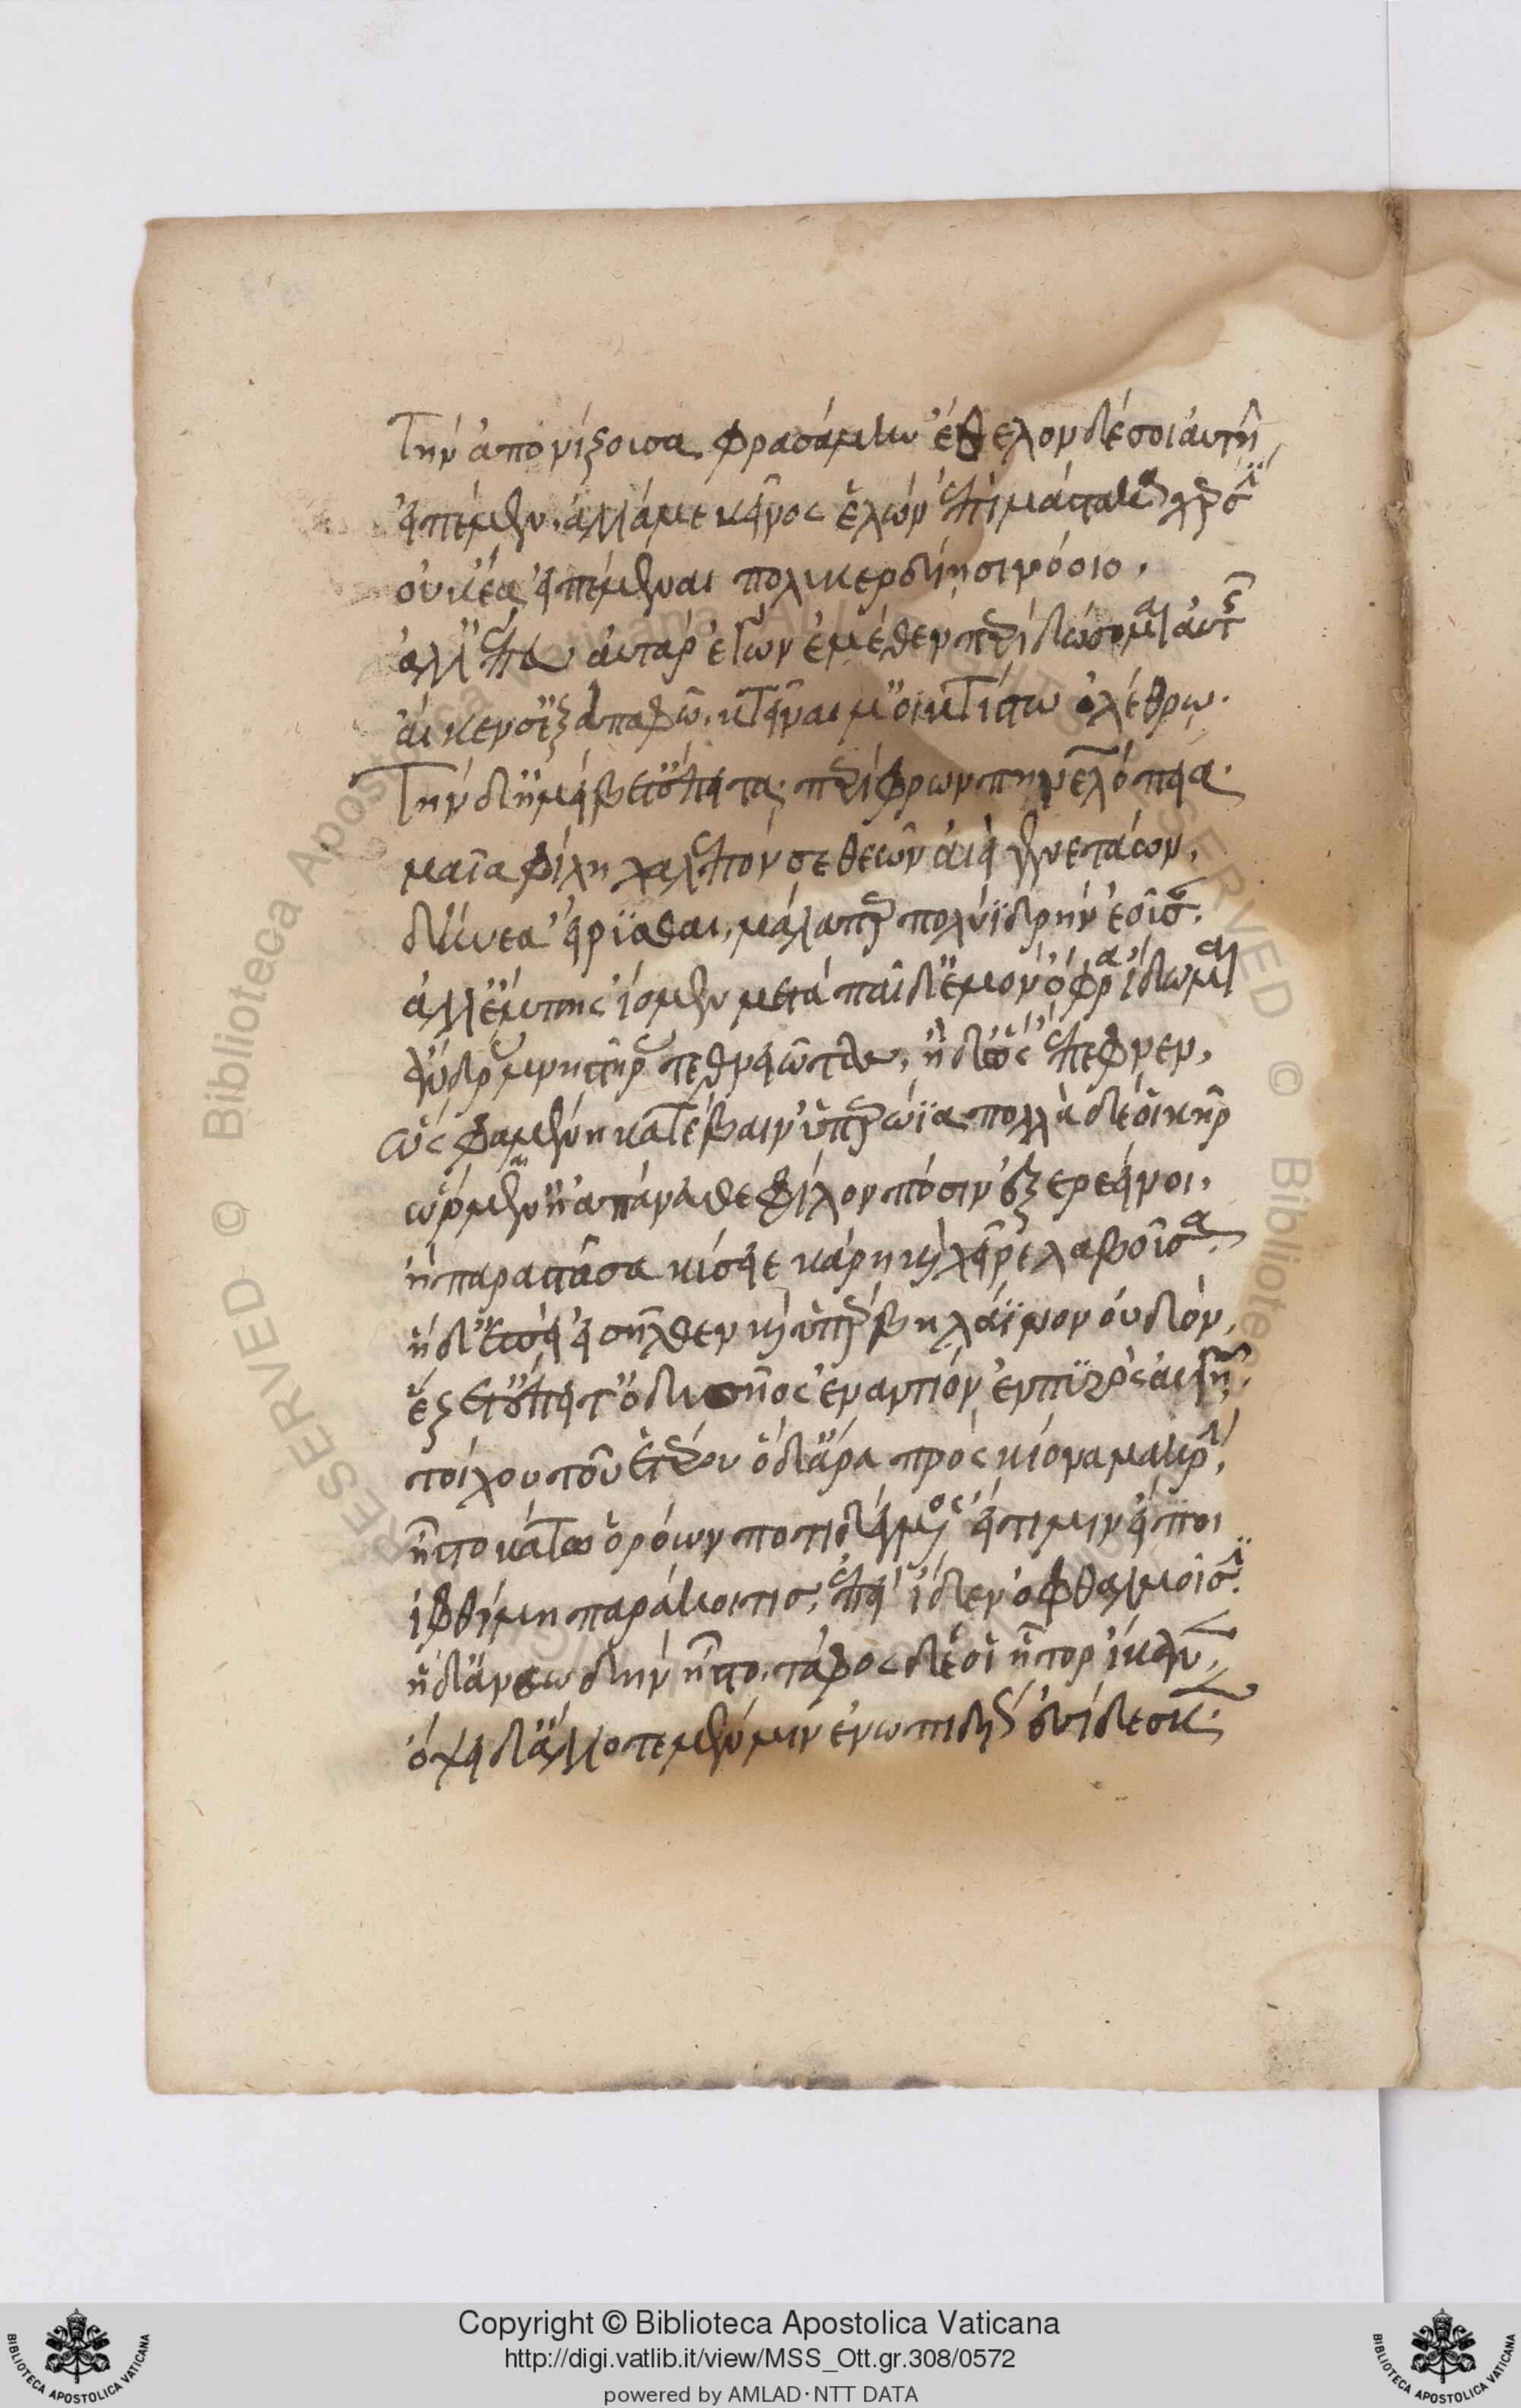 τὴν ἀπονίζουσα φρασάμην ἔθελον δέ σοι αὐτῇ
εἰπέμεν. ἀλλά με κεῖνος ἑλὼν ἐπὶ μάστακα χερσὶ
οὐκ ἔα εἰπέμεναι πολυκερδίῃσι νόοιο.
ἀλλ' ἕπευ αὐτὰρ ἐγὼν ἐμέθεν περιδώσομαι αὐτῆς
αἴ κεν σ' ἐξαπάφω. κτεῖναι μ' οἰκτίστω ὀλέθρω.
Τὴν δ' ἠμείβετ' ἔπειτα. περίφρων πηνελόπεια.
μαῖα φίλη χαλεπόν σε θεῶν αἰειγενετάων.
δήνεα εἴρυσθαι. μάλα περ πολύϊδρην ἐοῦσαν.
ἀλλ' ἔμπης ἴομεν μετὰ παῖδ' ἐμὸν ὄφρα ἴδωμαι
ἄνδρας μνηστῆρας τεθνειῶτας. ἠδ' ὃς ἔπεφνεν.
ὣς φαμένη κατέβαιν' ὑπερώϊα πολλὰ δέ οἱ κῆρ
ὥρμαιν' ἢ ἀπάνευθε φίλον πόσιν ἐξερεείνοι.
ἢ παραστᾶσα κύσειε κάρη καὶ χεῖρε λαβοῦσα.
ἡ δ' ἐπεὶ εἰσῆλθεν καὶ ὑπέρβη λάϊνον οὐδόν.
ἕζετ' ἔπειτ' ὀδυσῆος ἐναντίον ἐν πυρὸς αὐγῇ.
τοίχου τοῦ ἑτέρου ὁ δ' ἄρα πρὸς κίονα μακρὴν
ἧστο κάτω ὁρόων ποτιδέγμενος εἴ τί μιν εἴποι
ἰφθίμη παράκοιτις. ἐπεὶ ἴδεν ὀφθαλμοῖσιν.
ἡ δ' ἄνεω δὴν ἧστο. τάφος δέ οἱ ἦτορ ἵκανεν.
ὄψει δ' ἄλλοτε μέν μιν ἐνωπιδίως ἐσίδεσκεν.
Copyright © Biblioteca Apostolica Vaticana
http://digi.vatlib.it/view/MSS_Ott.gr.308/0572
powered by AMLAD·NTT DATA